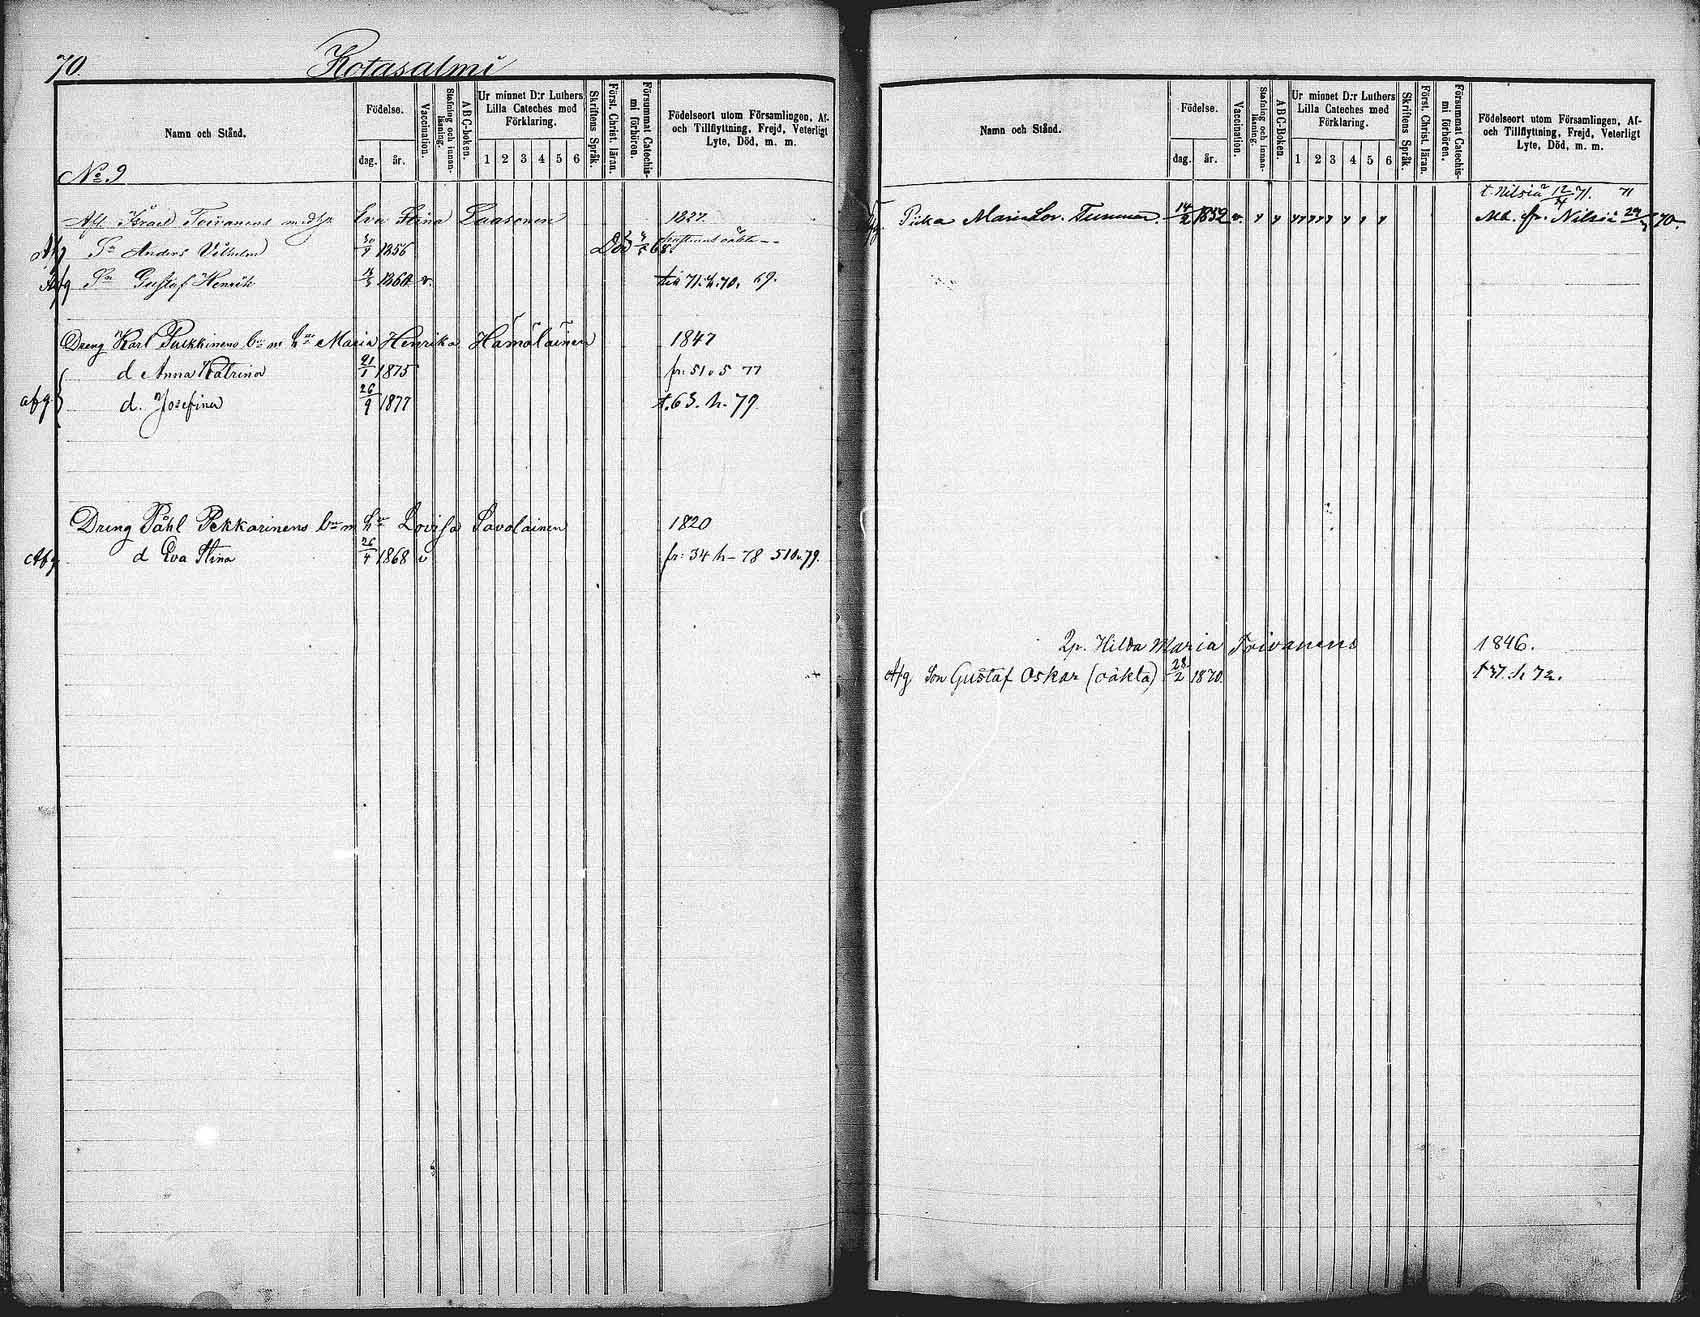 70.
Kotasalmi
Namn och Stånd.
Födelse.
dag. år.
Vaccination.
Stafning och innan-läsning.
ABC-boken.
Ur minnet D:r Luthers
Lilla Cateches med
Förklaring.
1 2 3 4 5 6
Skriftens Språk.
Först. Christ. läran.
Försummat Catechis-mi förhören.
Födelseort utom Församlingen, Af-
och Tillflyttning, Frejd, Veterligt
Lyte, Död, m. m.
No 9
Afl. Israel Toivanens Eva Stina Laasonen 1827.
Afg Sn Anders Vilhelm 1856 Död 68.
Afg Sn Gustaf Henrik 1860. v. 71. h. 70. 69.
Dreng Karl Pulkkinens Maria Henrika Hämäläinen 1847
d Anna Katrina 21/1 1875 fr: 51 v 5 77
afg d. Josefina 26/9 1877 t. 63. h. 79
Dreng Påhl Pekkarinens Lovisa Savolainen 1820
Afg d Eva Stina 26/4 1868 v fr: 34 h – 78 510 v. 79.
Namn och Stånd.
Födelse.
dag. år.
Vaccination.
Stafning och innan-läsning.
ABC-Boken.
Ur minnet D:r Luthers
Lilla Cateches med
Förklaring.
1 2 3 4 5 6
Skriftens Språk.
Först. Christ. läran.
Försummat Catechis-mi förhören.
Födelseort utom Församlingen, Af-
och Tillflyttning, Frejd, Veterligt
Lyte, Död, m. m.
t. Nilsiä 12/4 71. 71
Piika Maria Lov. Tumman. 14/2 1852 v. fr. Nilsiä 70.
Hilda Maria Toivanens 1846.
Afg Son Gustaf Oskar (oäkta) 28/2 1870. t 37. h 72.